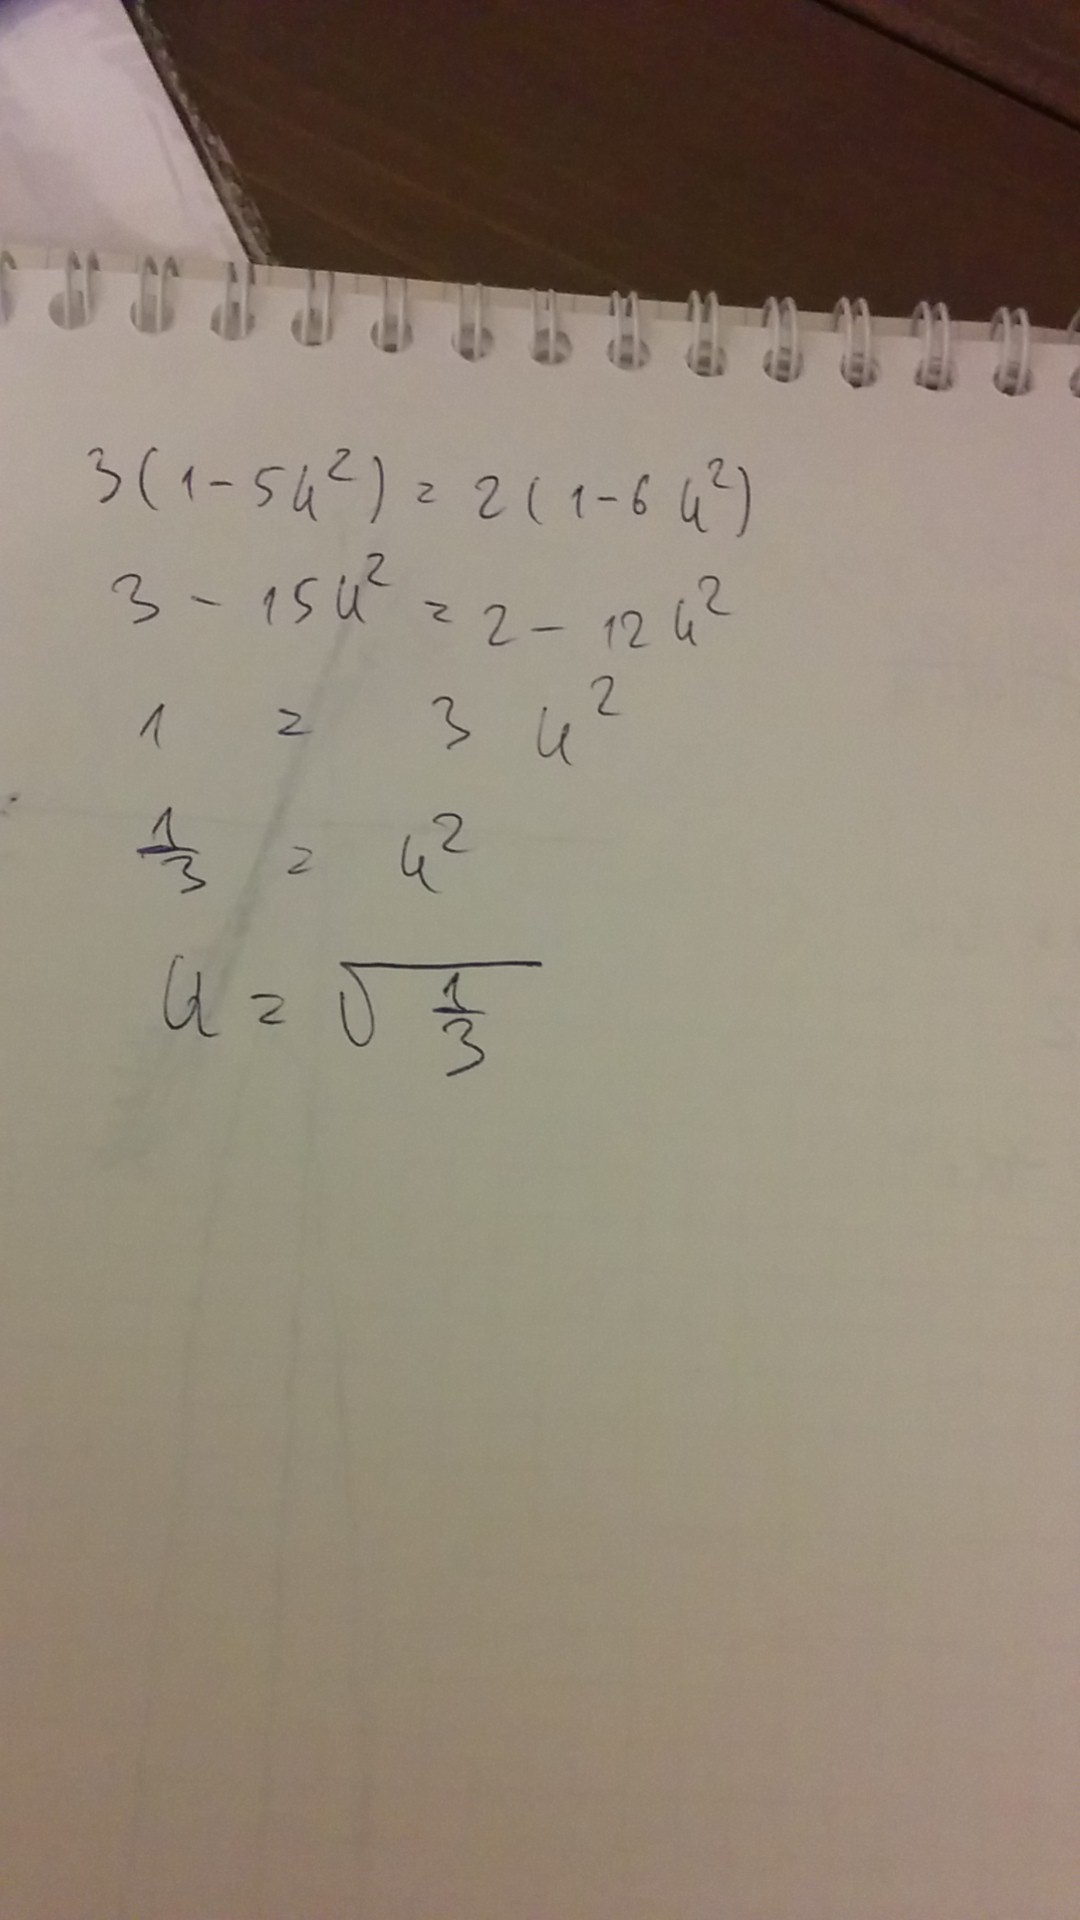 3(1-5u²) = 2(1-6u²)
3 - 15u² = 2 - 12u²
1 = 3u²
1/3 = u²
u = √1/3